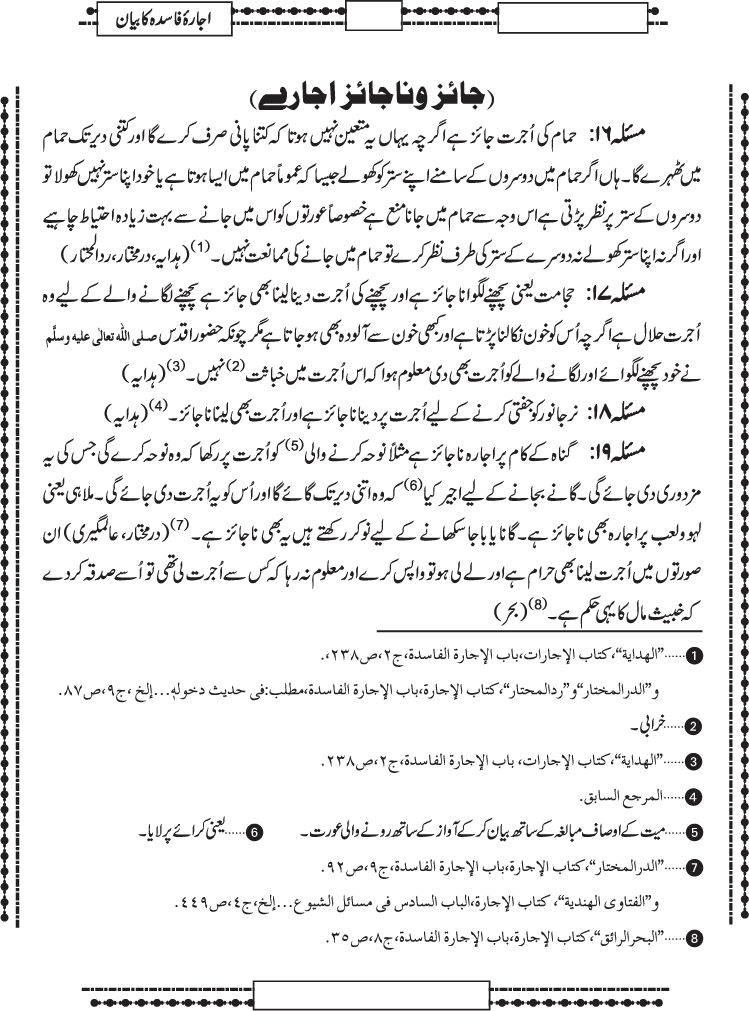 اجارۂ فاسدہ کا بیان
(جائز و ناجائز اجارے)
مسئلہ ۱۶: حمام کی اُجرت جائز ہے اگرچہ یہاں یہ متعین نہیں ہوتا کہ کتنا پانی صرف کرے گا اور کتنی دیر تک حمام
میں ٹھہرے گا۔ ہاں اگر حمام میں دوسروں کے سامنے اپنے ستر کو کھولے جیسا کہ عموماً حمام میں ایسا ہوتا ہے یا خود اپنا ستر نہیں کھولا تو
دوسروں کے ستر پر نظر پڑتی ہے اس وجہ سے حمام میں جانا منع ہے خصوصاً عورتوں کو اس میں جانے سے بہت زیادہ احتیاط چاہیے
اور اگر نہ اپنا ستر کھولے نہ دوسرے کے ستر کی طرف نظر کرے تو حمام میں جانے کی ممانعت نہیں۔(1) (ہدایہ، درمختار، ردالمحتار)
مسئلہ ۱۷: حجامت یعنی پچھنے لگوانا جائز ہے اور پچھنے کی اُجرت دینا لینا بھی جائز ہے پچھنے لگانے والے کے لیے وہ
اُجرت حلال ہے اگرچہ اُس کو خون نکالنا پڑتا ہے اور کبھی خون سے آلودہ بھی ہو جاتا ہے مگر چونکہ حضور اقدس صلی اللہ تعالٰی علیہ وسلَّم
نے خود پچھنے لگوائے اور لگانے والے کو اُجرت بھی دی معلوم ہوا کہ اس اُجرت میں خباثت(2) نہیں۔(3) (ہدایہ)
مسئلہ ۱۸: نر جانور کو جفتی کرنے کے لیے اُجرت پر دینا ناجائز ہے اور اُجرت بھی لینا ناجائز۔(4) (ہدایہ)
مسئلہ ۱۹: گناہ کے کام پر اجارہ ناجائز ہے مثلاً نوحہ کرنے والی(5) کو اُجرت پر رکھا کہ وہ نوحہ کرے گی جس کی یہ
مزدوری دی جائے گی۔ گانے بجانے کے لیے اجیر کیا(6) کہ وہ اتنی دیر تک گائے گا اور اُس کو یہ اُجرت دی جائے گی۔ ملاہی یعنی
لہو ولعب پر اجارہ بھی ناجائز ہے۔ گانا یا باجا سکھانے کے لیے نوکر رکھتے ہیں یہ بھی ناجائز ہے۔(7) (درمختار، عالمگیری) ان
صورتوں میں اُجرت لینا بھی حرام ہے اور لے لی ہو تو واپس کرے اور معلوم نہ رہا کہ کس سے اُجرت لی تھی تو اُسے صدقہ کر دے
کہ خبیث مال کا یہی حکم ہے۔(8) (بحر)
1......"الهداية"، كتاب الإجارات، باب الإجارة الفاسدة، ج۲، ص۲۳۸،.
و"الدرالمختار" و"ردالمحتار"، كتاب الإجارة، باب الإجارة الفاسدة، مطلب: فى حديث دخوله...إلخ، ج۹، ص۸۷.
2......خرابی۔
3......"الهداية"، كتاب الإجارات، باب الإجارة الفاسدة، ج۲، ص۲۳۸.
4......المرجع السابق.
5......میت کے اوصاف مبالغہ کے ساتھ بیان کر کے آواز کے ساتھ رونے والی عورت۔ 6......یعنی کرائے پر لایا۔
7......"الدرالمختار"، كتاب الإجارة، باب الإجارة الفاسدة، ج۹، ص۹۲.
و"الفتاوى الهندية"، كتاب الإجارة، الباب السادس فى مسائل الشيوع...إلخ، ج٤، ص٤٤۹.
8......"البحرالرائق"، كتاب الإجارة، باب الإجارة الفاسدة، ج۸، ص۳٥.